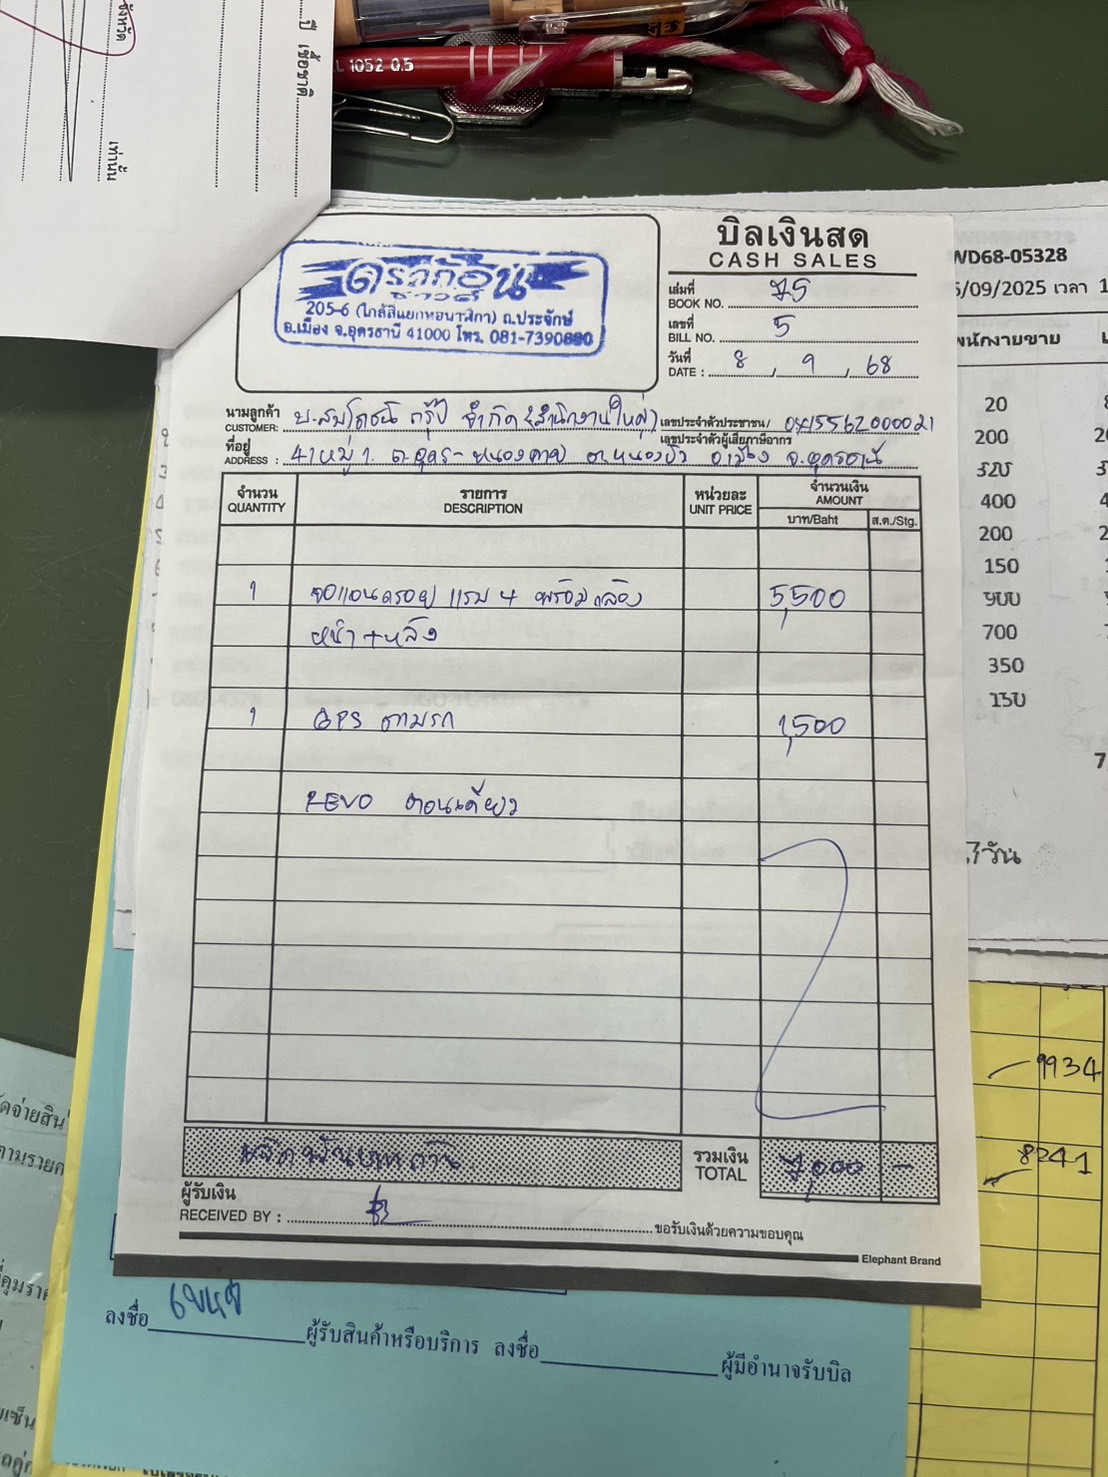 จังหวัด
ปี เชื้อชาติ
เท่านั้น
L 1052 0.5
ดราก้อน
ซาวด์
205-6 (ใกล้สี่แยกหอนาฬิกา) ถ.ประจักษ์
อ.เมือง จ.อุดรธานี 41000 โทร. 081-7390880
บิลเงินสด
CASH SALES
เล่มที่
BOOK NO. 75
เลขที่
BILL NO. 5
วันที่
DATE : 8 / 9 / 68
นามลูกค้า
CUSTOMER: กรุ๊ป จำกัด (สำนักงานใหญ่) เลขประจำตัวประชาชน/
เลขประจำตัวผู้เสียภาษีอากร
ที่อยู่
ADDRESS : 41 หมู่ 1 ถ.อุดร-หนองคาย ต.หนองบัว อ.เมือง จ.อุดรธานี
จำนวน
QUANTITY
รายการ
DESCRIPTION
หน่วยละ
UNIT PRICE
จำนวนเงิน
AMOUNT
บาท/Baht
ส.ต./Stg.
1 จอแอนดรอย แรม 4 พร้อมกล้อง 5,500
หน้า+หลัง
1 GPS ตามรถ 1,500
REVO ตอนเดียว
เจ็ดพันบาทถ้วน
รวมเงิน
TOTAL
7,000 -
ผู้รับเงิน
RECEIVED BY :
ขอรับเงินด้วยความขอบคุณ
Elephant Brand
WD68-05328
/09/2025 เวลา 1
พนักงานขาย
20
200
320
400
200
150
900
700
350
150
7 วัน
9934
8241
ลงชื่อ
ผู้รับสินค้าหรือบริการ ลงชื่อ
ผู้มีอำนาจรับบิล